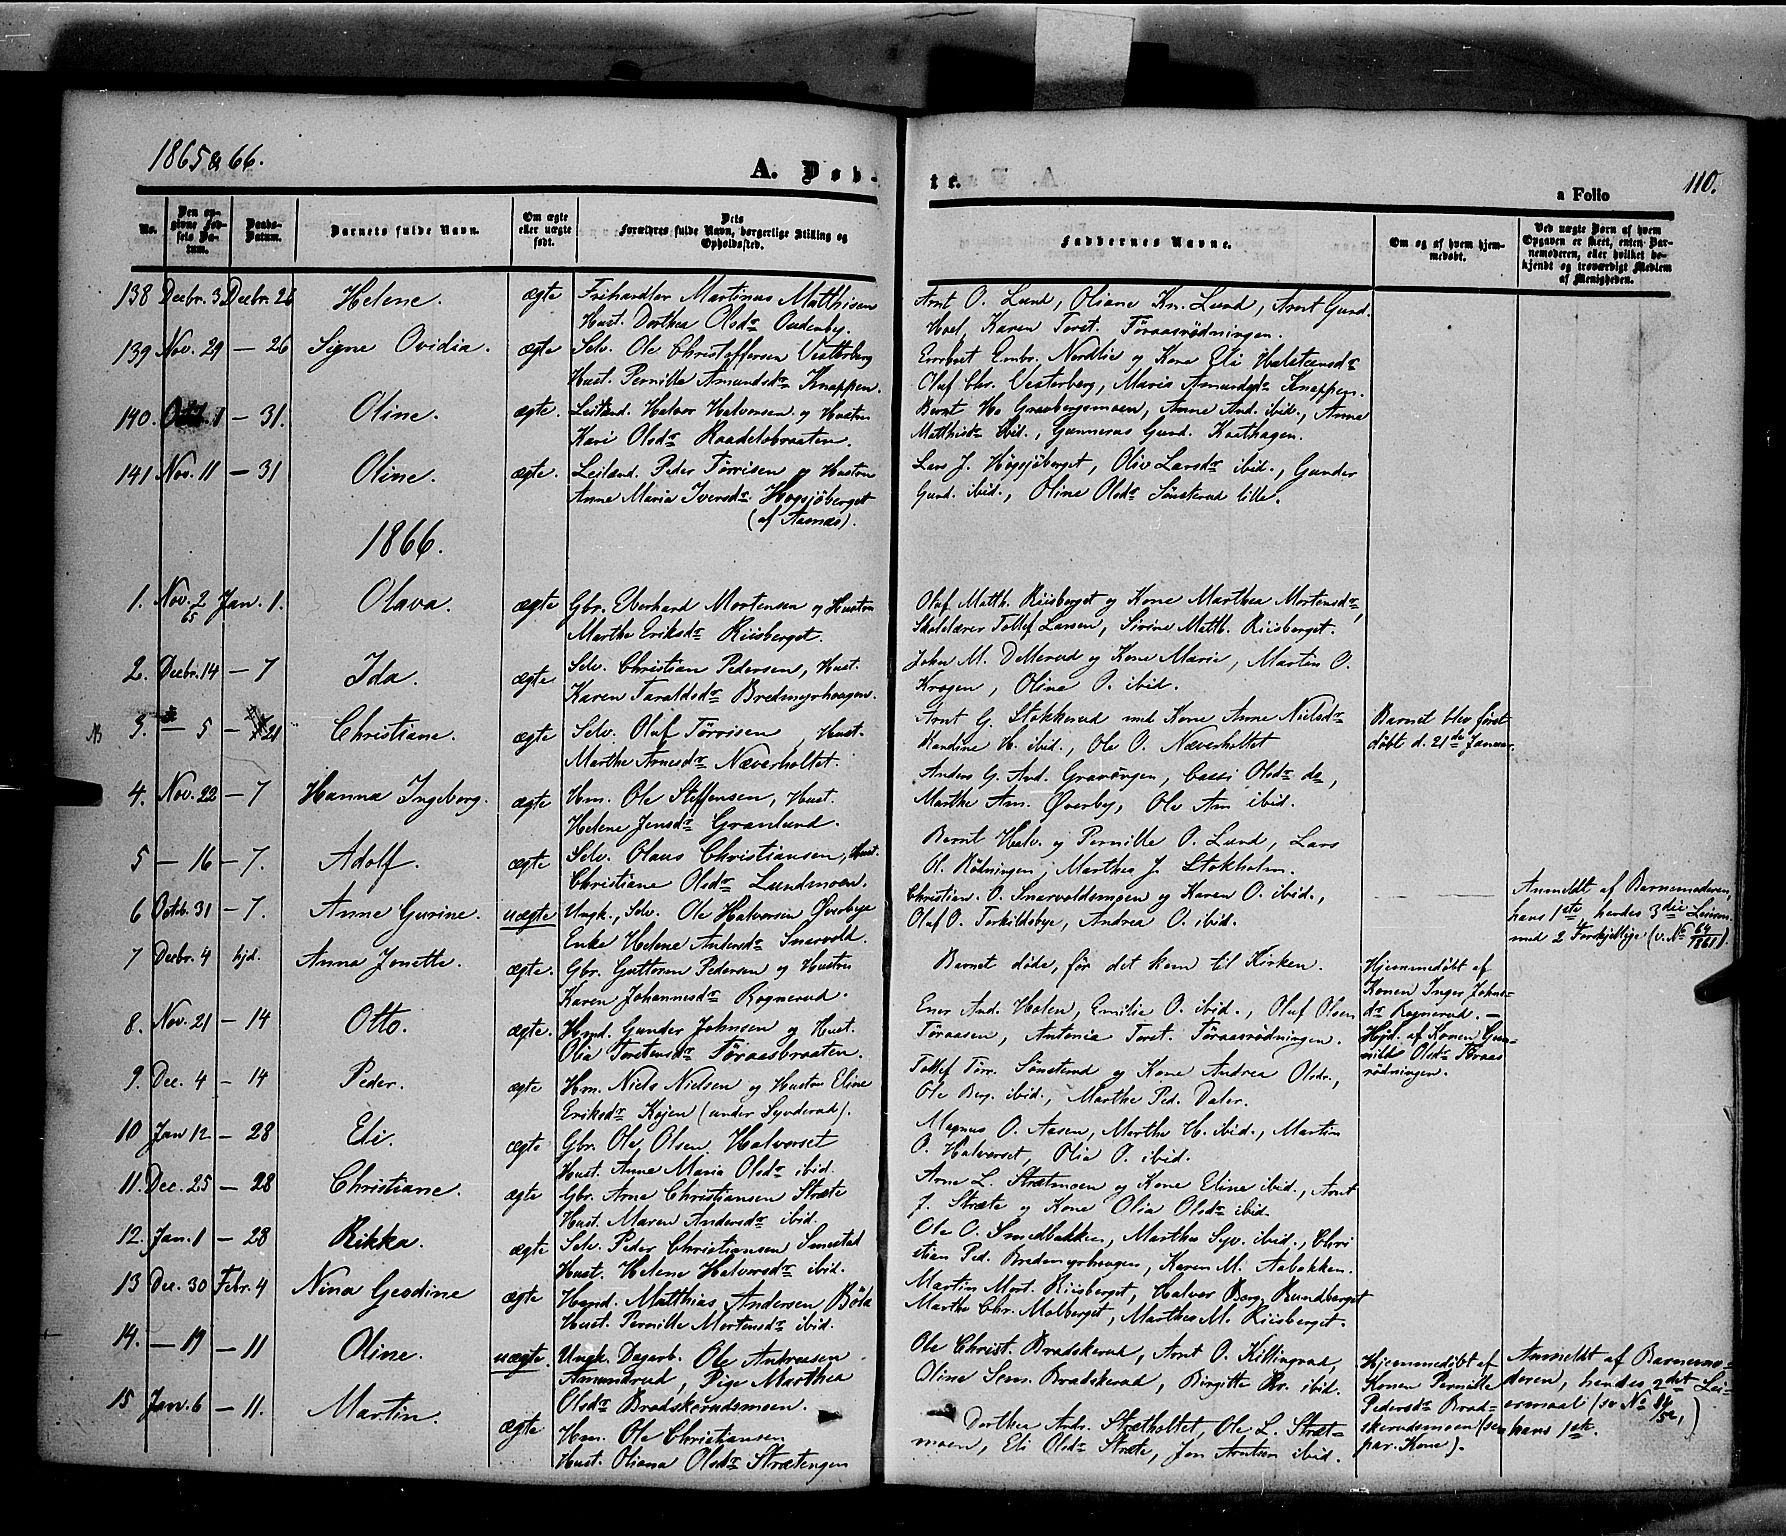 1865 & 66.
A. Døb-
te.
a Folio
110.
No.
Den opgivne Fødsels Datum.
Daabs-Datum.
Barnets fulde Navn.
Om ægte eller uægte født.
Dets Forældres fulde Navn, borgerlige Stilling og Opholdssted.
Faddernes Navne.
Om og af hvem hjemmedøbt.
Ved uægte Børn af hvem Opgaven er skeet, enten Barnemoderen, eller hvilket bekjendt og troværdigt Medlem af Menigheden.
138 Decbr. 3 Decbr. 26 Helene. ægte Frihandler Martinus Mathisen
Hust. Dorthea Olsdr Oudenby.
Arnt O. Lund, Oliane Kn. Lund, Arnt Gund.
Hoel, Karen Toret. Føraasrødningen.
139 Nov. 29 — 26 Signe Ovidia. ægte Selv. Ole Christoffersen Vesterberg
Hust. Pernille Amundsdr Knappen.
Embr. Nordlie og Kone Eli Halsteensdr
Oluf Chr. Vesterberg, Maria Amundsdr Knappen.
140. Oct. 1 — 31. Oline. ægte. Leiland. Halvor Halvorsen og Hustru
Kari Olsdr Raadelsbraaten.
Bernt Ho Gravbergsmoen, Anne And. ibid., Anne
Matthisdr ibid., Gunnerus Gund. Kaathagen.
141 Nov. 11 — 31 Oline. ægte. Leiland. Peder Tørrisen og Hustru
Anne Maria Iversdr. Høgsjøberget
(af Aasnæs).
Lars J. Høgsjøberget, Oliv Larsdr ibid., Gunder
Gund. ibid., Oline Olsdr Sønsterud lille.
1866.
1. Nov. 2 65 Jan. 1. Olava. ægte Gbr. Eberhard Mortensen og Hustru
Marthe Eriksdr Riisberget.
Oluf Matth. Riisberget og Kone Marthea Mortensdr,
Skolelærer Tollef Larsen, Sirine Matth. Riisberget.
2. Decbr. 14 — 7 Ida. ægte. Selv. Christian Pedersen, Hust.
Karen Taraldsdr Bredmyrhaagen.
John M. Dellerud og Kone Marie, Martin O.
Krogen, Olina O. ibid.
NB 3. — 5 — 21 Christiane. ægte Selv. Oluf Tørrisen, Hust.
Marthe Arnesdr Næverholtet.
Arnt G. Stokkerud med Kone Anne Nielsdr
Randine H. ibid., Ole O. Næverholtet
Barnet blev først
døbt d. 21de Januar.
4. Nov. 22 — 7 Hanna Ingeborg. ægte Hm. Ole Steffensen, Hust.
Helene Jensdr Granlund.
Anders G. And. Gravengen, Cassi Olsdr do,
Marthe Am. Øverby, Ole Am ibid.
5 — 16 — 7. Adolf. ægte Selv. Olaus Christiansen, Hust.
Christiane Olsdr Lundmoen.
Bernt Halv. og Pernille O. Lund, Lars
O. Rødningen, Marthea J. Stokholm.
6 Octob. 31 — 7. Anne Gurine. uægte Ungk., Selv. Ole Halvorsen Øverbye
Enke Helene Andersdr Snarvold.
Christian. O. Snarvoldsmoen og Karen O. ibid.,
Oluf O. Torkildsbye, Andrea O. ibid.
Anmeldt af Barnemoderen,
hans 1ste, hendes 3die Leierm.
med 2 Forskjellige (v. No 64/1861).
7 Decbr. 4 hjd. Anna Jonette. ægte. Gbr. Guttorm Pedersen og Hustru
Karen Johannesdr Rognerud.
Barnet døde, før det kom til Kirken.
Hjemmedøbt af
Konen Inger Johns-
dr Rognerud. —
8. Nov. 21 — 14 Otto. ægte. Hmd. Gunder Johnsen og Hust.
Olia Torstensdr Føraasbraaten.
Ener And. Holen, Emilie O. ibid., Oluf Olsen
Føraasen, Antonie Toret. Føraasrødningen.
Hjd. af Konen Gun-
nild Olsdr Føraas
rødningen.
9. Dec. 4 — 14 Peder. ægte Hm. Niels Nielsen og Hustru Eline
Eriksdr Kojen (under Synderud).
Tollef Tørr. Sønsterud og Kone Andrea Olsdr.,
Ole Berg. ibid., Marthe Ped. Daler.
10 Jan 12 — 28 Eli. ægte Gbr. Ole Olsen Halvorset
Hust. Anne Maria Olsdr ibid.
Magnus O. Aasen, Marthe H. ibid., Martin
O. Halvorset, Olia O. ibid.
11. Dec. 25 — 28 Christiane. ægte Gbr. Arne Christiansen Stræte
Hust. Maren Andersdr ibid.
Arne L. Strætmoen og Kone Eline ibid., Arnt
J. Stræte og Kone Olia Olsdr ibid.
12. Jan. 1 — 28 Rikka. ægte Selv. Peder Christiansen Smestad
Hust. Helene Halvorsdr ibid.
Ole O. Smedbakken, Marthea Syv. ibid., Chri
stian Ped. Bredmyrhaagen, Karen M. Aabakken.
13 Dec. 30 Febr. 4 Nina Geodine ægte Hmd. Matthias Andersen Bøla
Hust. Pernille Mortensdr ibid.
Martin Mort. Riisberget, Halvor Berg. Rundberget
Marthe Chr. Malberget, Marthea M. Riisberget.
14. — 19 — 11 Oline. uægte. Ungk. Dagarb. Ole Andreasen
Amundrud, Pige Marthea
Olsdr Bradskerudsmoen.
Ole Christ. Bradskerud, Arnt O. Killingrud,
Oline Sem. Bradskerud, Birgitte Kr. ibid.
Hjemmedøbt af
Konen Pernille
Pedersdr Brad-
skerudsmoen (sen
par. Kone).
Anmeldt af Barnemo-
deren, hendes 2det Lei-
ermaal (sv No 84/52,)
hans 1ste.
15 Jan. 6 — 11. Martin. ægte Hm. Ole Christiansen
Hust. Oliana Olsdr Strætengen
Dorthea Andr. Strætholtet, Ole L. Stræt-
moen, Eli Olsdr Stræte, Jon Arntsen ibid.